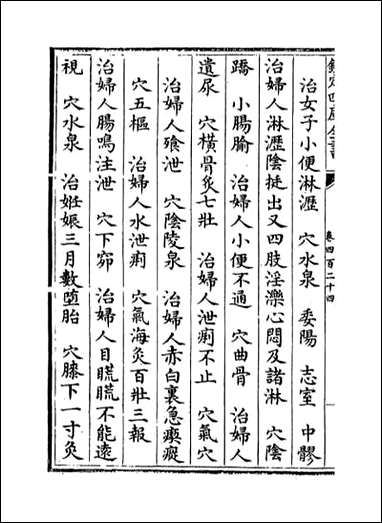 欽定四庫全書
卷四百二十四
治女子小便淋瀝　穴水泉　委陽　志室　中髎
治婦人淋瀝陰挺出又四肢淫濼心悶及諸淋　穴陰
蹻　小腸腧　治婦人小便不通　穴曲骨　治婦人
遺尿　穴横骨炙七壯　治婦人泄痢不止　穴氣穴
治婦人飱泄　穴陰陵泉　治婦人赤白裏急瘈瘲
穴五樞　治婦人水泄痢　穴氣海灸百壯三報
治婦人腸鳴注泄　穴下窌　治婦人目䀮䀮不能遠
視　穴水泉　治姙娠三月數墮胎　穴膝下一寸灸